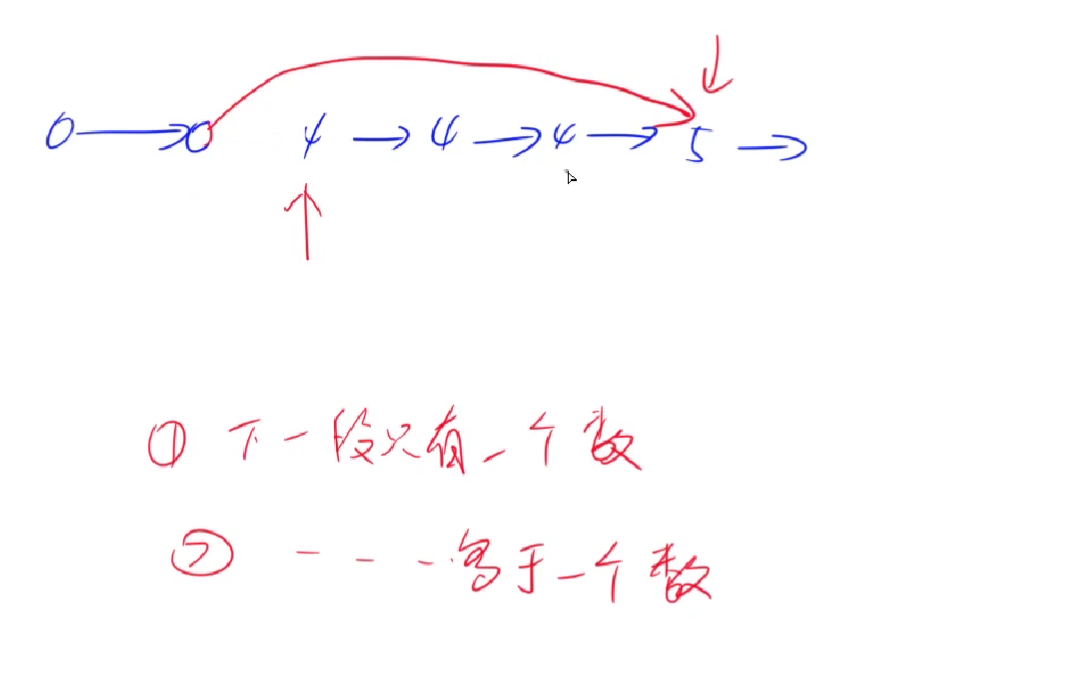 0 → 0 4 → 4 → 4 → 5 →
① 下一段只有一个数
② - - - 多于一个数